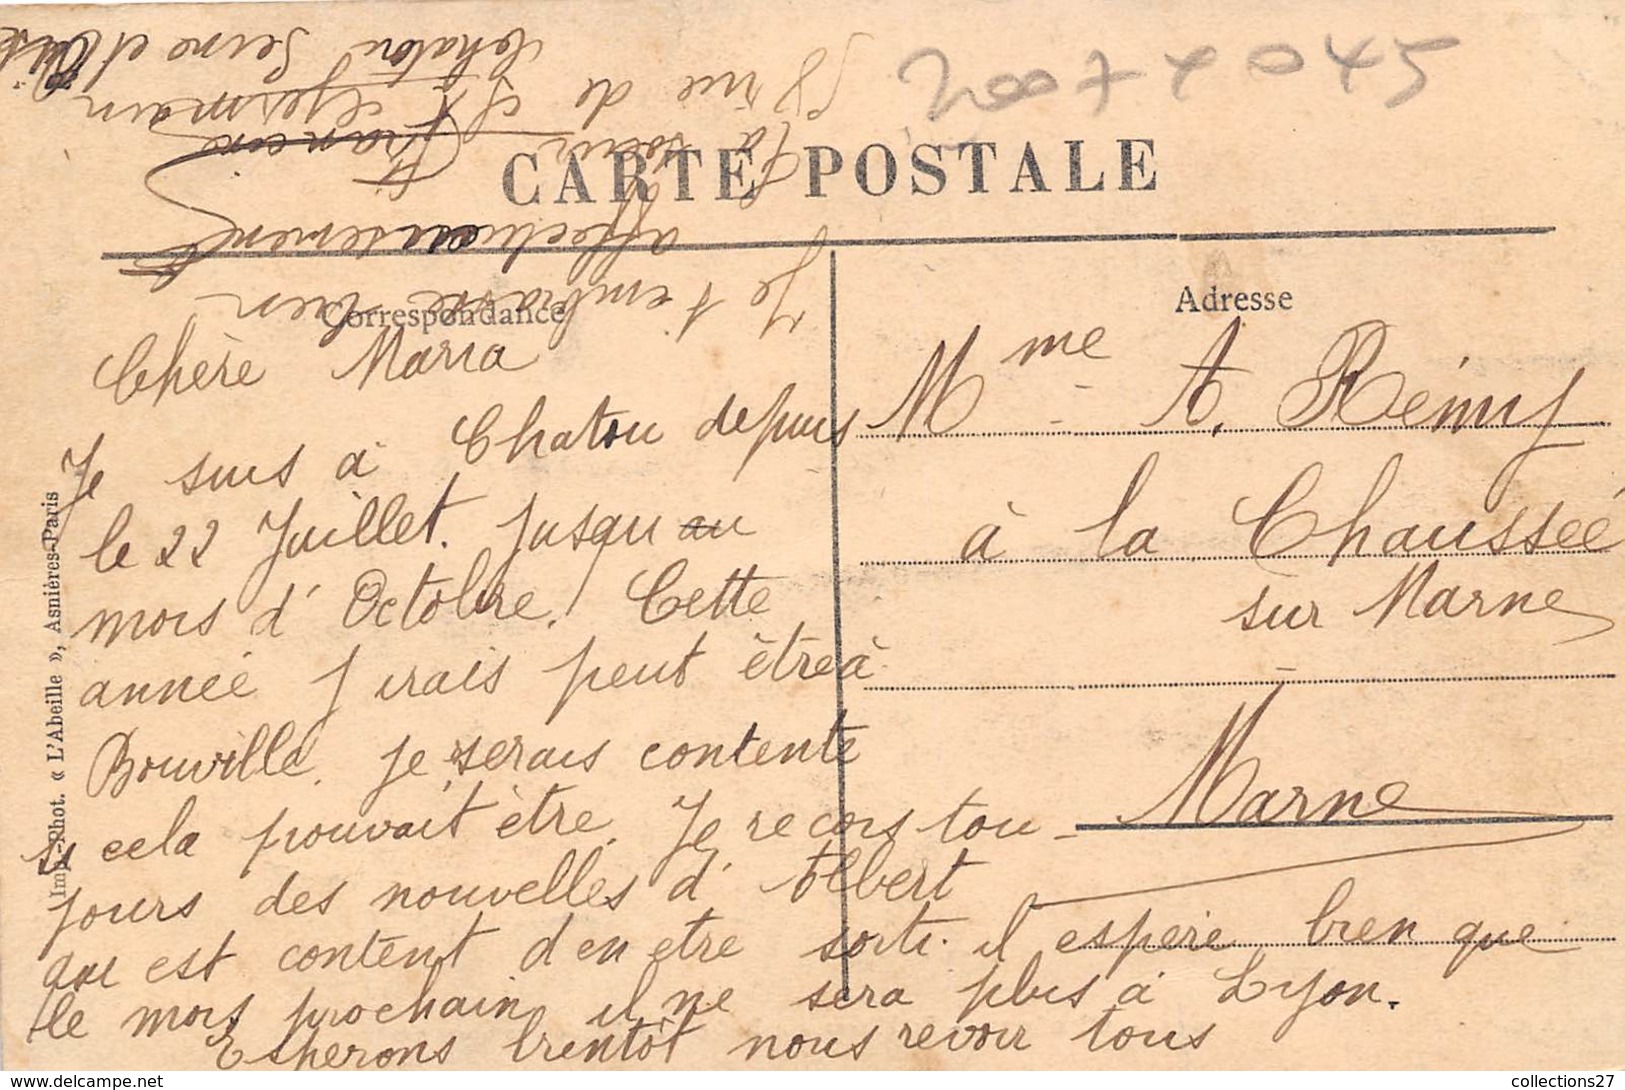 20074045
CARTE POSTALE
Correspondance
Adresse
Chère Maria
Je suis à Chatou depuis
le 22 Juillet. jusqu au
mois d' Octobre. Cette
année J irais peut être à
Bouville. je serais contente
si cela pouvait être. Je recois tou-
jours des nouvelles d' Albert
qui est content d en etre sorti. il espère bien que
le mois prochain il ne sera plus à Lyon.
Esperons bientôt nous revoir tous
Je t embrasse bien
affectueusement
Ta soeur
Francine
58 rue de St Germain
Chatou Seine et Oise
Mme A. Rémy
à la Chaussée
sur Marne
Marne
Imp.-Phot. « L'Abeille », Asnières-Paris
collections27